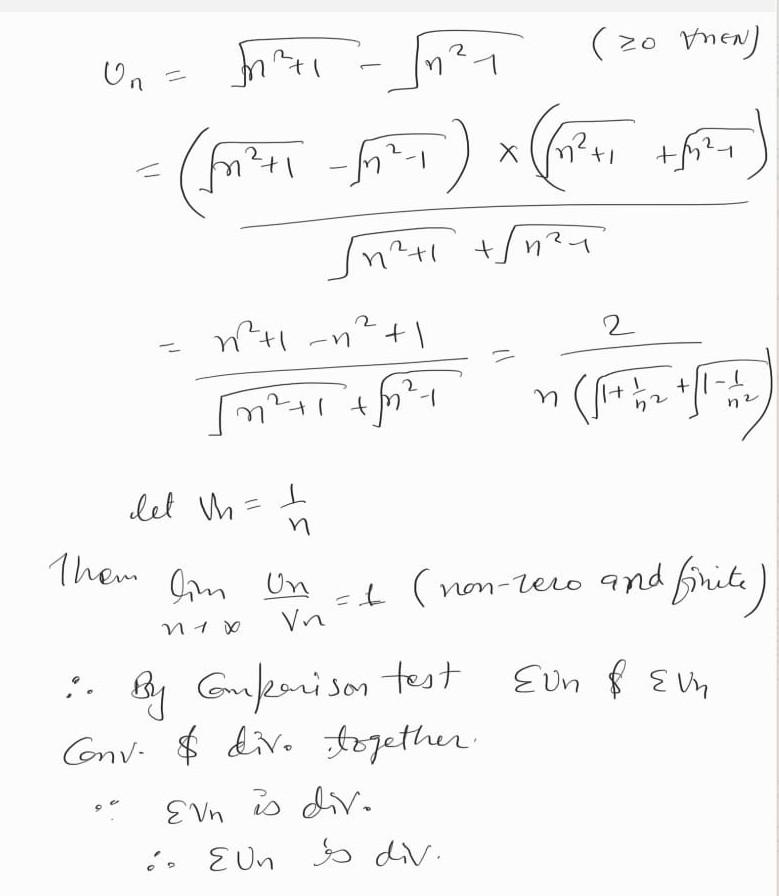 Un = √(n²+1) - √(n²-1) (≥0 ∀n∈N)
= (√(n²+1) - √(n²-1)) × (√(n²+1) + √(n²-1)) / (√(n²+1) + √(n²-1))
= (n²+1 - n²+1) / (√(n²+1) + √(n²-1)) = 2 / (n(√(1+1/n²) + √(1-1/n²)))
let Vn = 1/n
Then lim n→∞ Un/Vn = 1 (non-zero and finite)
∴ By Comparison test ΣUn & ΣVn
Conv. & div. together.
∵ ΣVn is div.
∴ ΣUn is div.